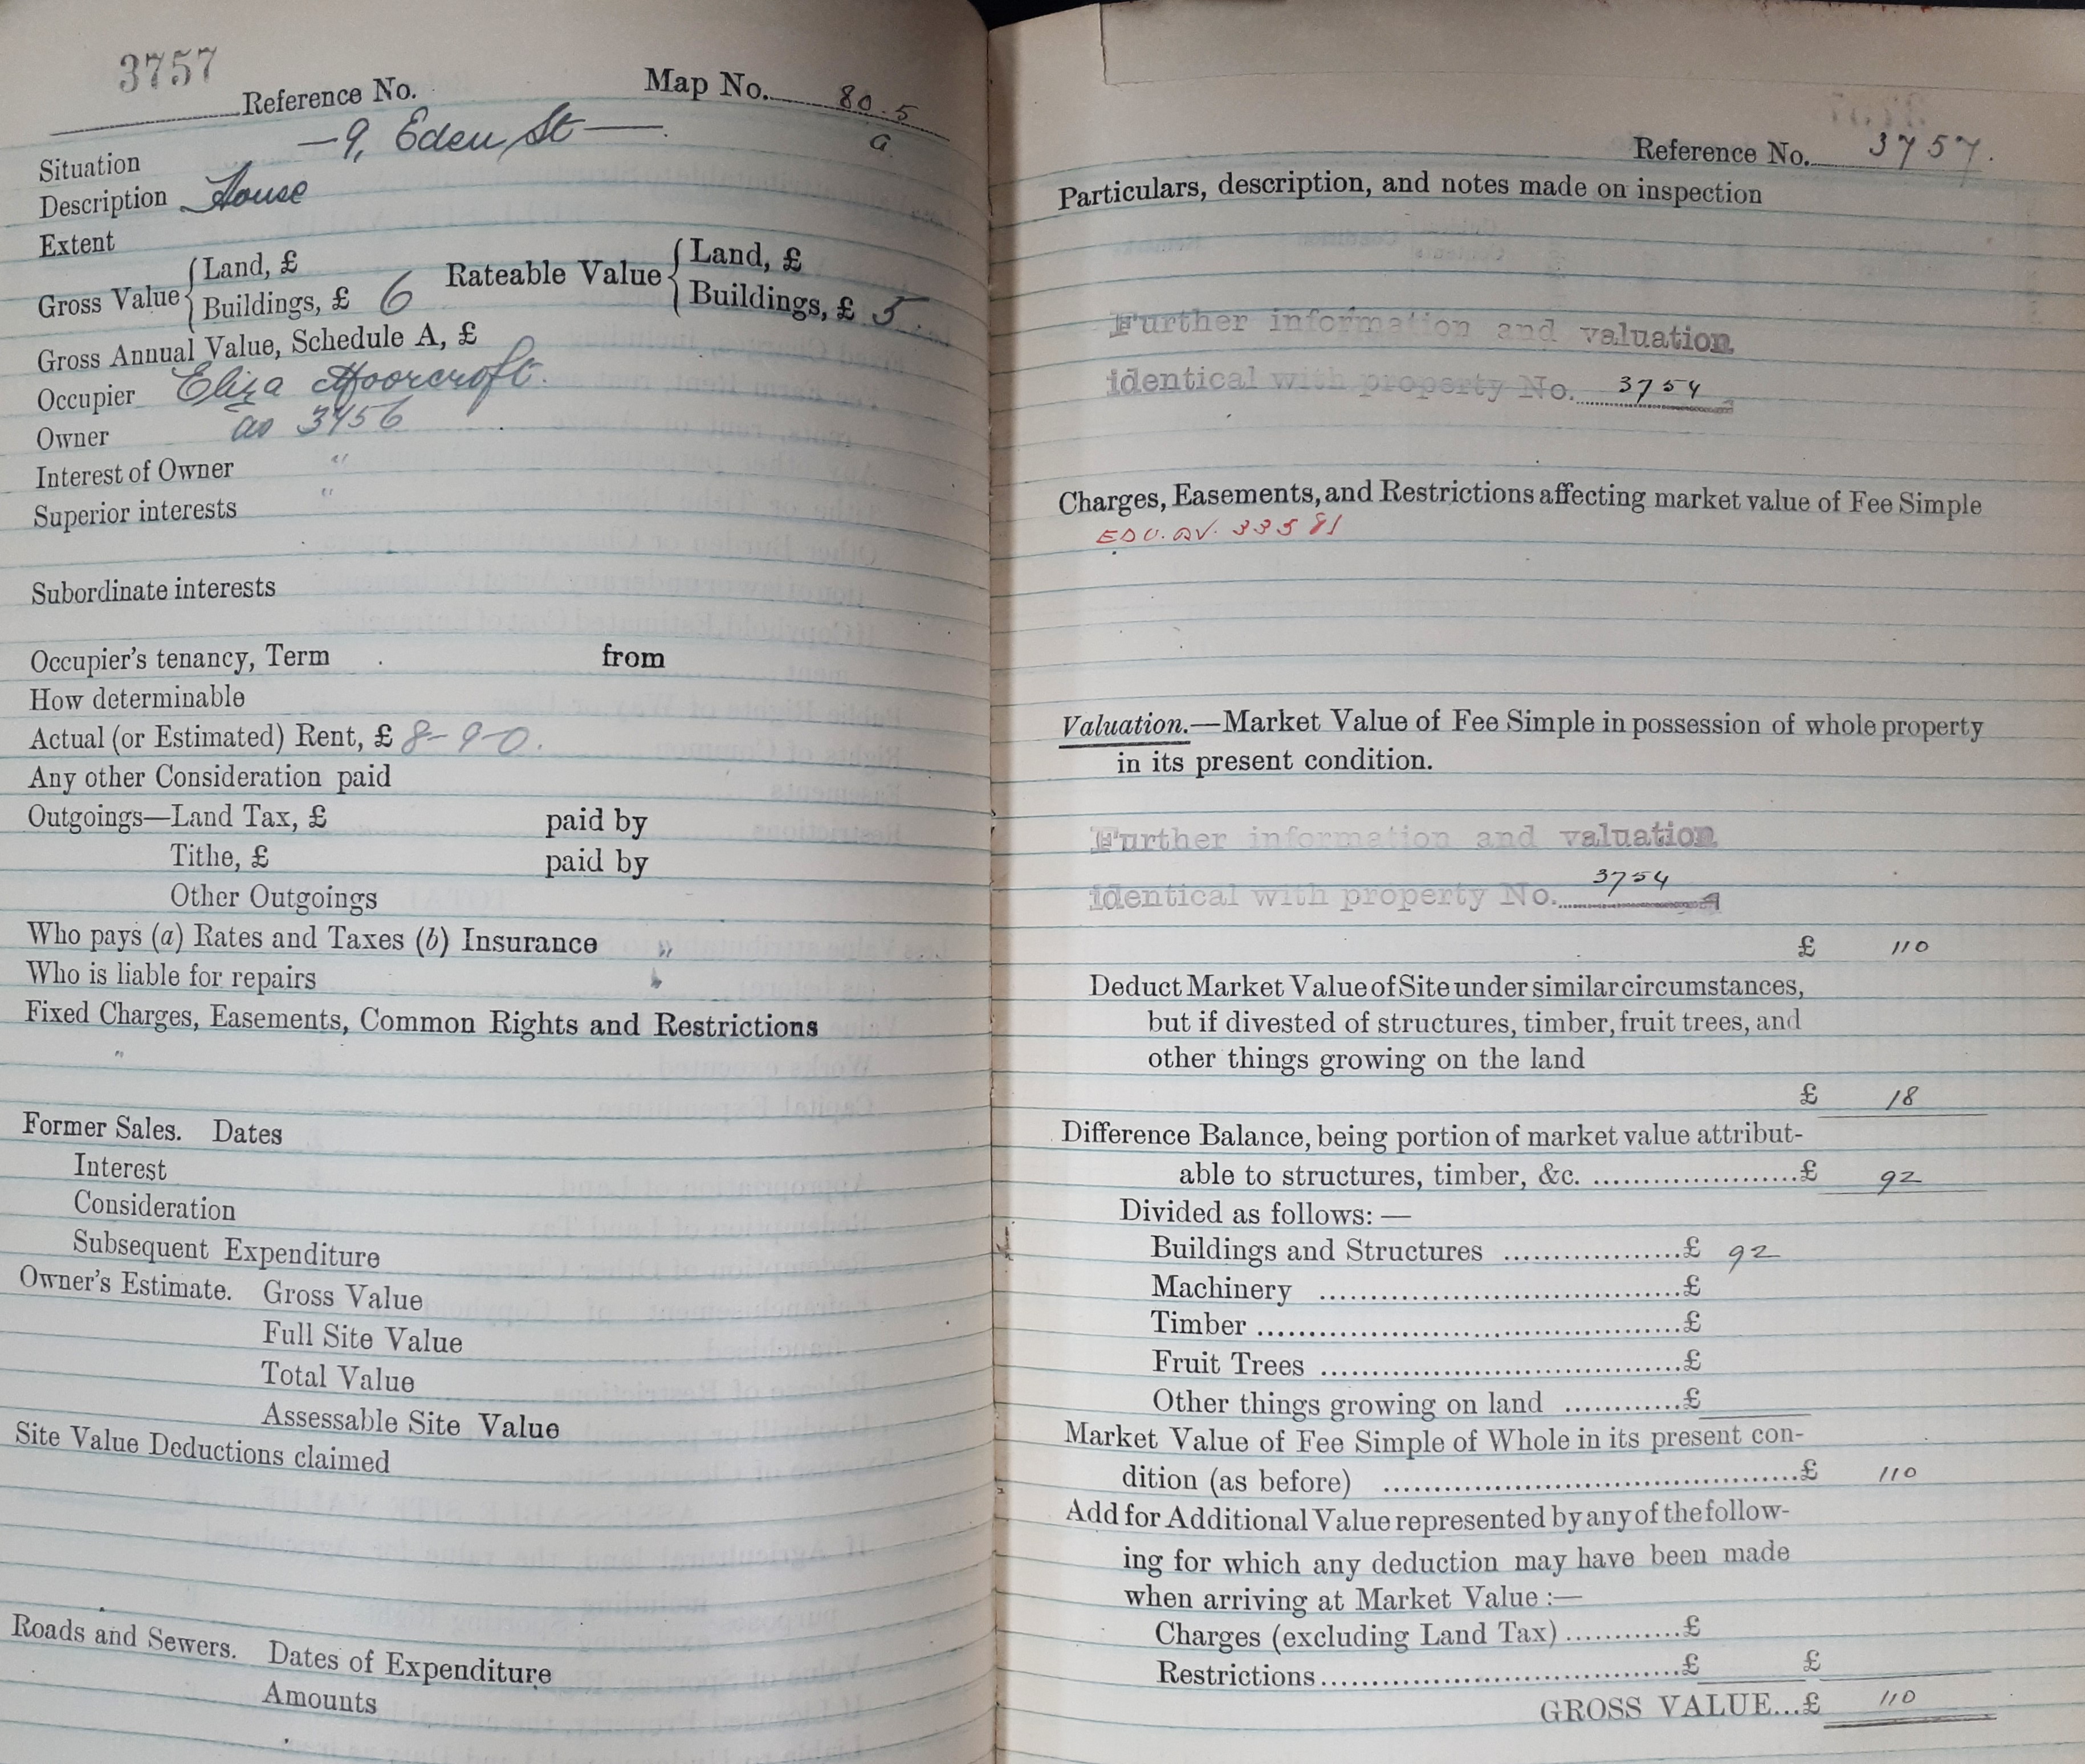 3757
Reference No. Map No. 80.5
a
Situation —9, Eden St—.
Description House
Extent
Gross Value { Land, £ Rateable Value { Land, £
Buildings, £ 6 Buildings, £ 5.
Gross Annual Value, Schedule A, £
Occupier Eliza Moorcroft.
Owner as 3756
Interest of Owner "
Superior interests "
Subordinate interests
Occupier's tenancy, Term from
How determinable
Actual (or Estimated) Rent, £ 8-9-0.
Any other Consideration paid
Outgoings—Land Tax, £ paid by
Tithe, £ paid by
Other Outgoings
Who pays (a) Rates and Taxes (b) Insurance "
Who is liable for repairs "
Fixed Charges, Easements, Common Rights and Restrictions
"
Former Sales. Dates
Interest
Consideration
Subsequent Expenditure
Owner's Estimate. Gross Value
Full Site Value
Total Value
Assessable Site Value
Site Value Deductions claimed
Roads and Sewers. Dates of Expenditure
Amounts
Reference No. 3757.
Particulars, description, and notes made on inspection
Further information and valuation
identical with property No. 3754
Charges, Easements, and Restrictions affecting market value of Fee Simple
EDU. AV. 33581
Valuation.—Market Value of Fee Simple in possession of whole property
in its present condition.
Further information and valuation
identical with property No. 3754
£ 110
Deduct Market Value of Site under similar circumstances,
but if divested of structures, timber, fruit trees, and
other things growing on the land
£ 18
Difference Balance, being portion of market value attribut-
able to structures, timber, &c. ......................£ 92
Divided as follows:—
Buildings and Structures ...................£ 92
Machinery .......................................£
Timber ..............................................£
Fruit Trees .......................................£
Other things growing on land ............£
Market Value of Fee Simple of Whole in its present con-
dition (as before) .............................................£ 110
Add for Additional Value represented by any of the follow-
ing for which any deduction may have been made
when arriving at Market Value :—
Charges (excluding Land Tax) ............£
Restrictions.......................................£ £
GROSS VALUE...£ 110